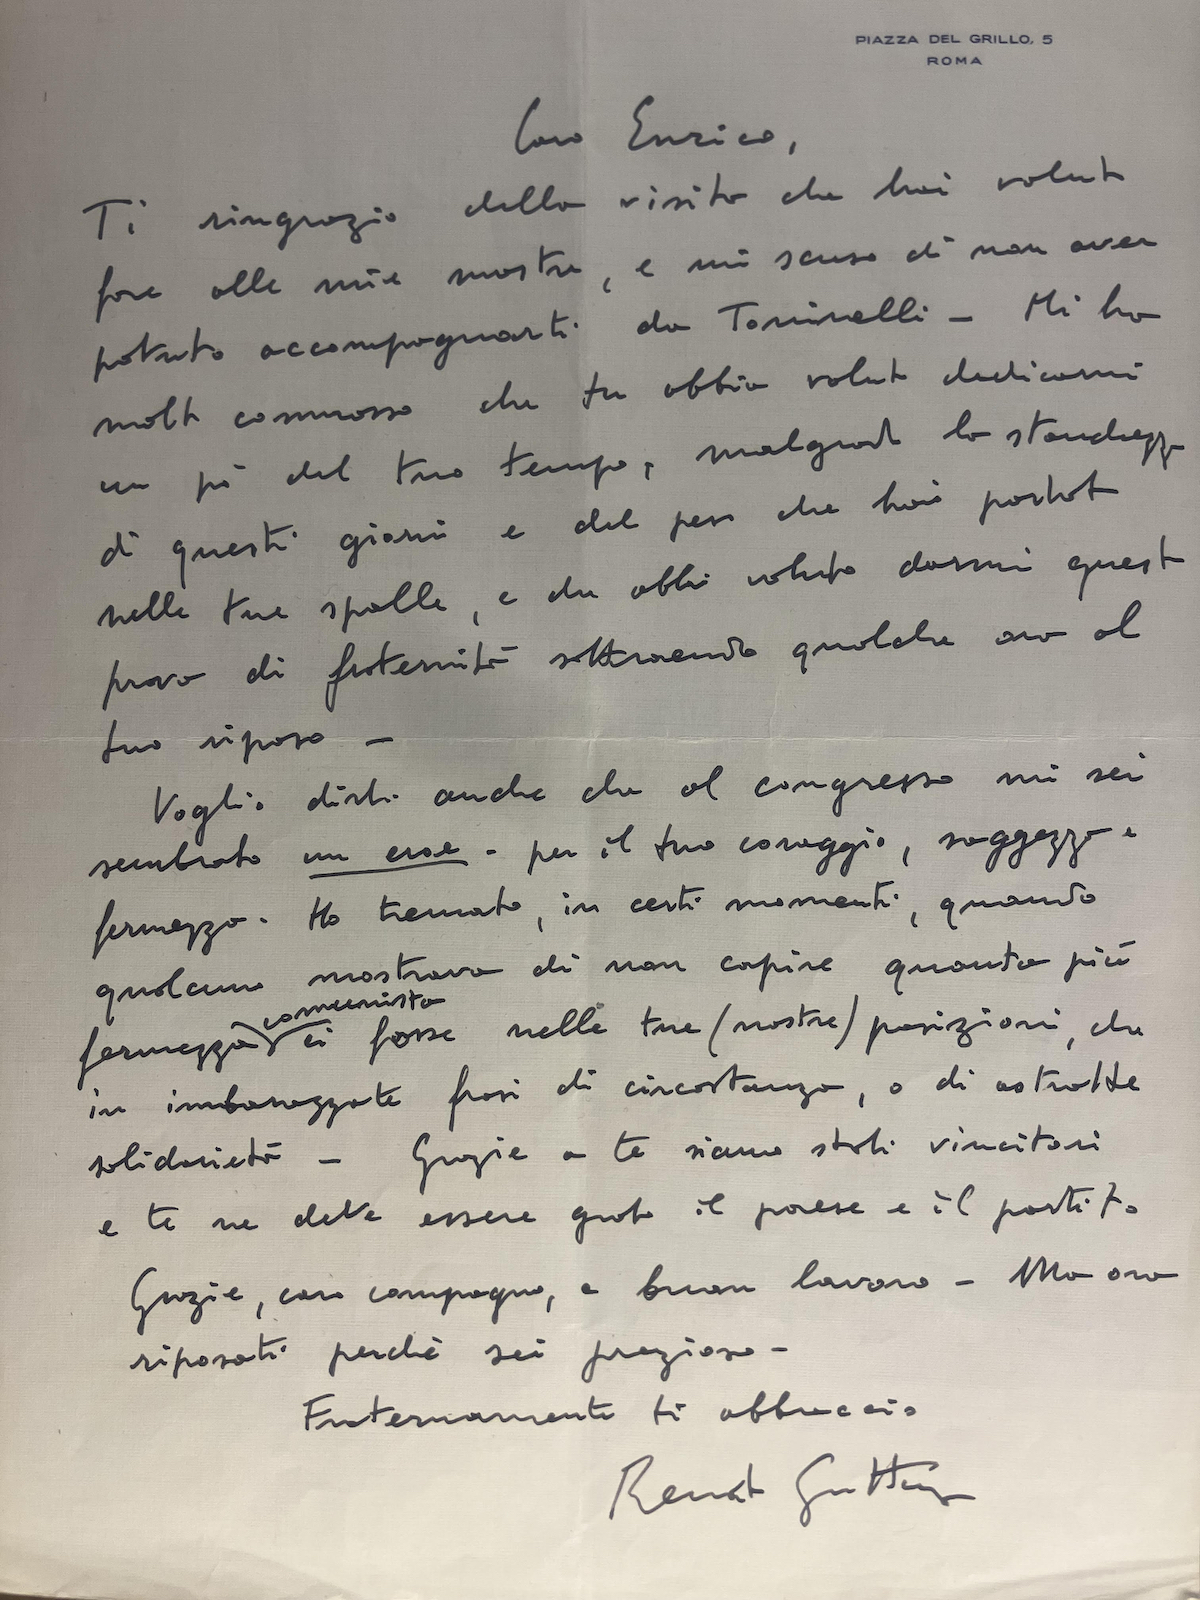 PIAZZA DEL GRILLO, 5
ROMA
Caro Enrico,
Ti ringrazio della visita che hai voluto
fare alle mie mostre, e mi scuso di non aver
potuto accompagnarti da Toninelli – Mi ha
molto commosso che tu abbia voluto dedicarmi
un pò del tuo tempo, malgrado la stanchezza
di questi giorni e del peso che hai portato
nelle tue spalle, e che abbi voluto darmi questa
prova di fraternità sottraendo qualche ora al
tuo riposo –
Voglio dirti anche che al congresso mi sei
sembrato un eroe – per il tuo coraggio, saggezza e
fermezza. Ho tremato, in certi momenti, quando
qualcuno mostrava di non capire quanta più
comunista
fermezza ci fosse nelle tue (nostre) posizioni, che
in imbarazzate frasi di circostanza, o di astratte
solidarietà – Grazie a te siamo stati vincitori
e te ne deve essere grato il paese e il partito.
Grazie, caro compagno, e buon lavoro – Ma ora
riposati perchè sei prezioso –
Fraternamente ti abbraccio
Renato Guttuso